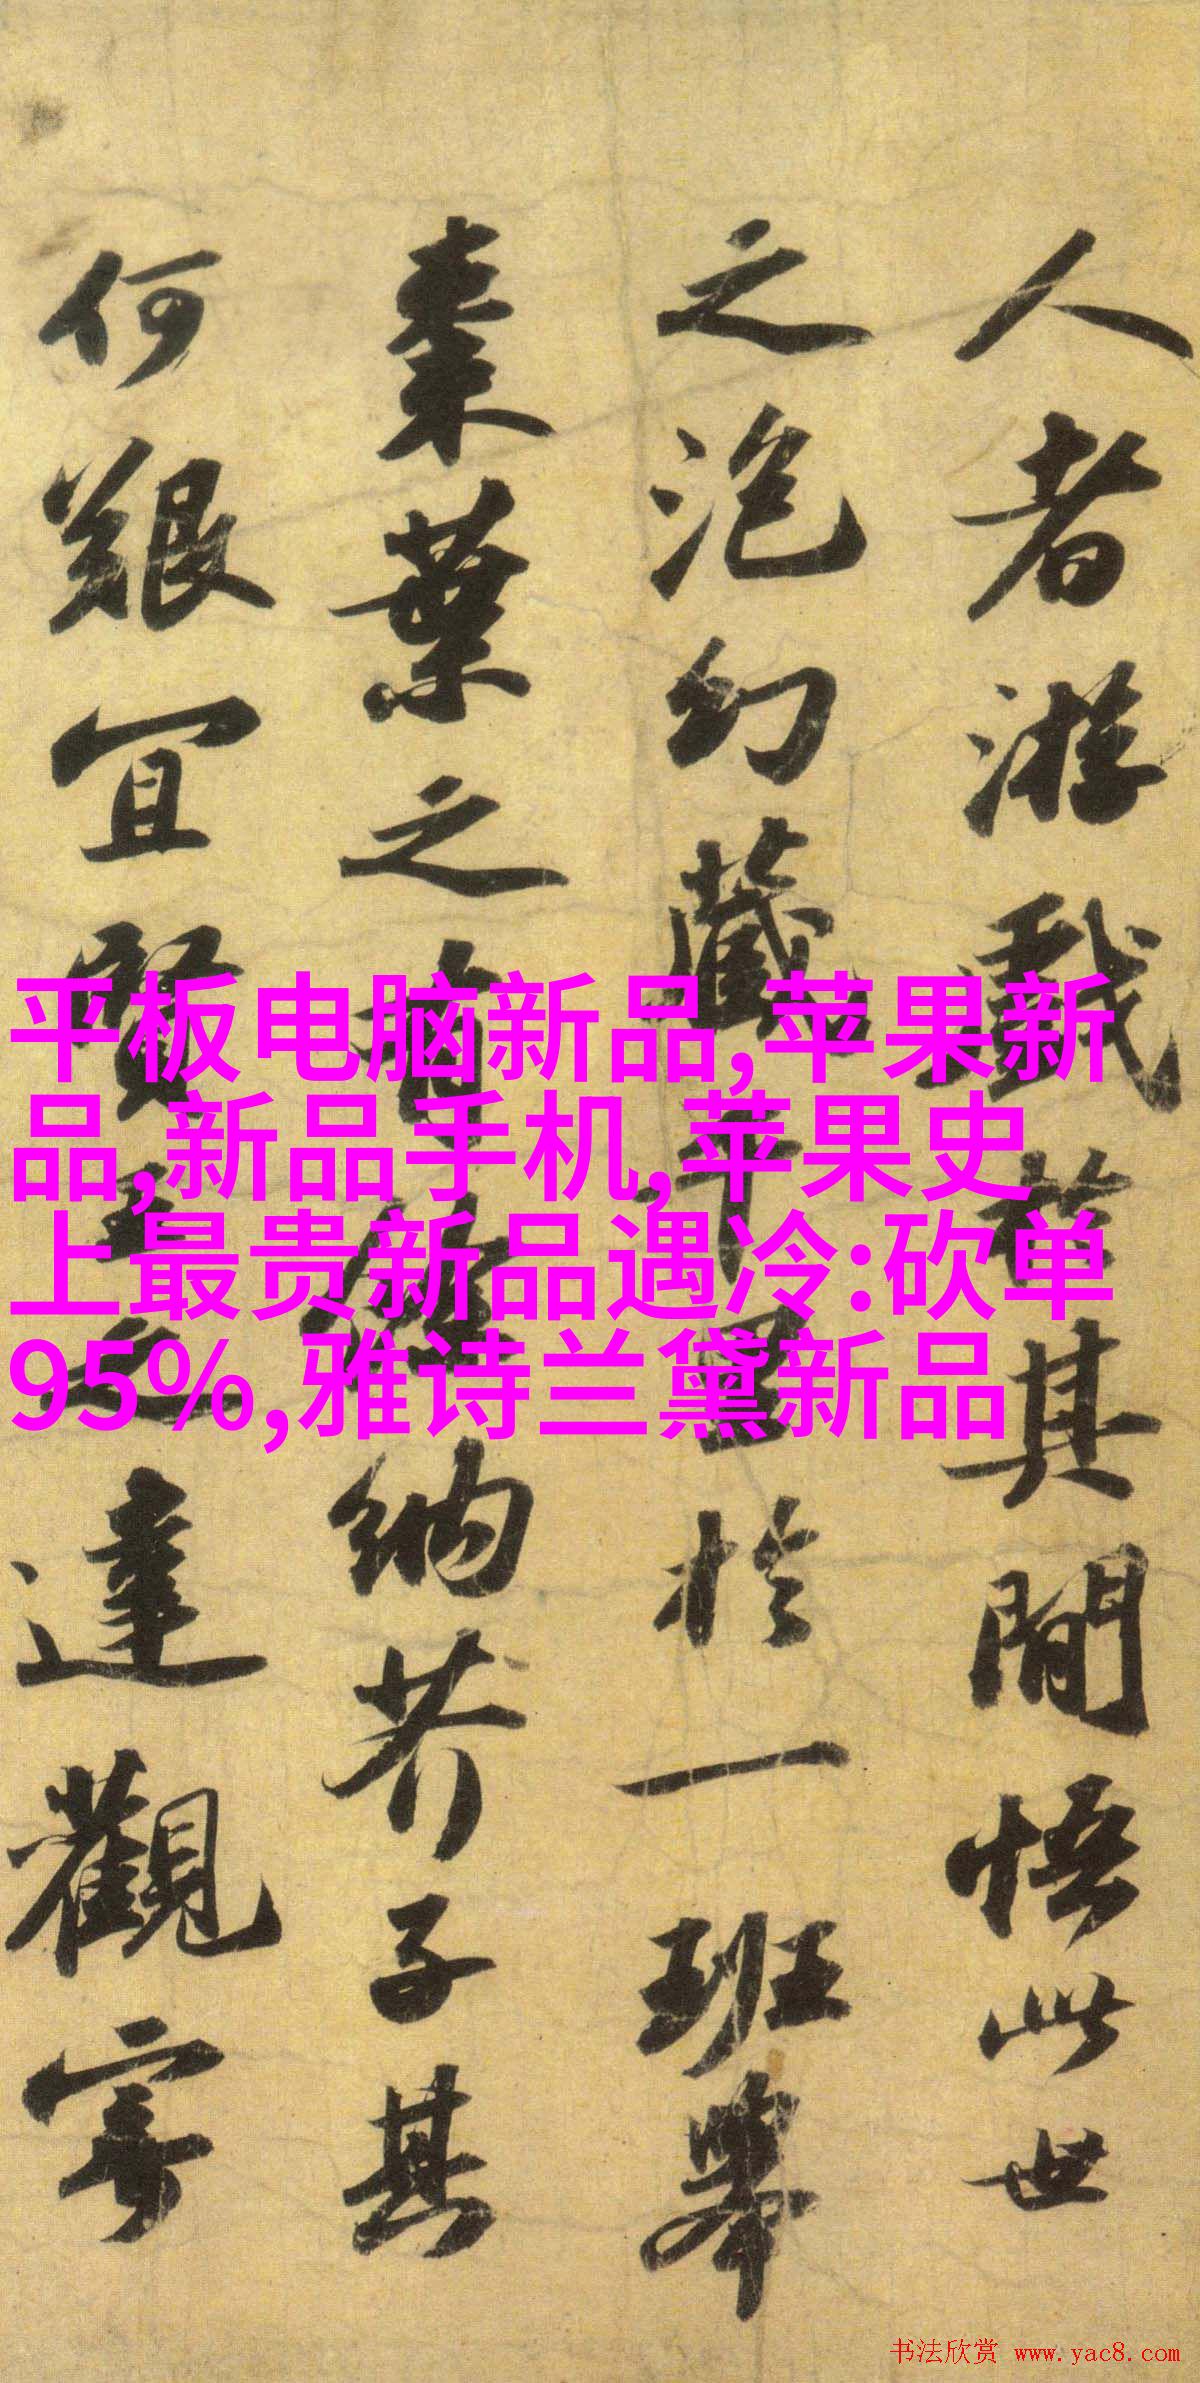 人者游戲於其間悟此世
之泡幻藏千里於一班舉
棗葉之有餘納芥子其
何艱宜賢王之達觀寄
平板电脑新品,苹果新
品,新品手机,苹果史
上最贵新品遇冷:砍单
95%,雅诗兰黛新品
书法欣赏 www.yac8.com